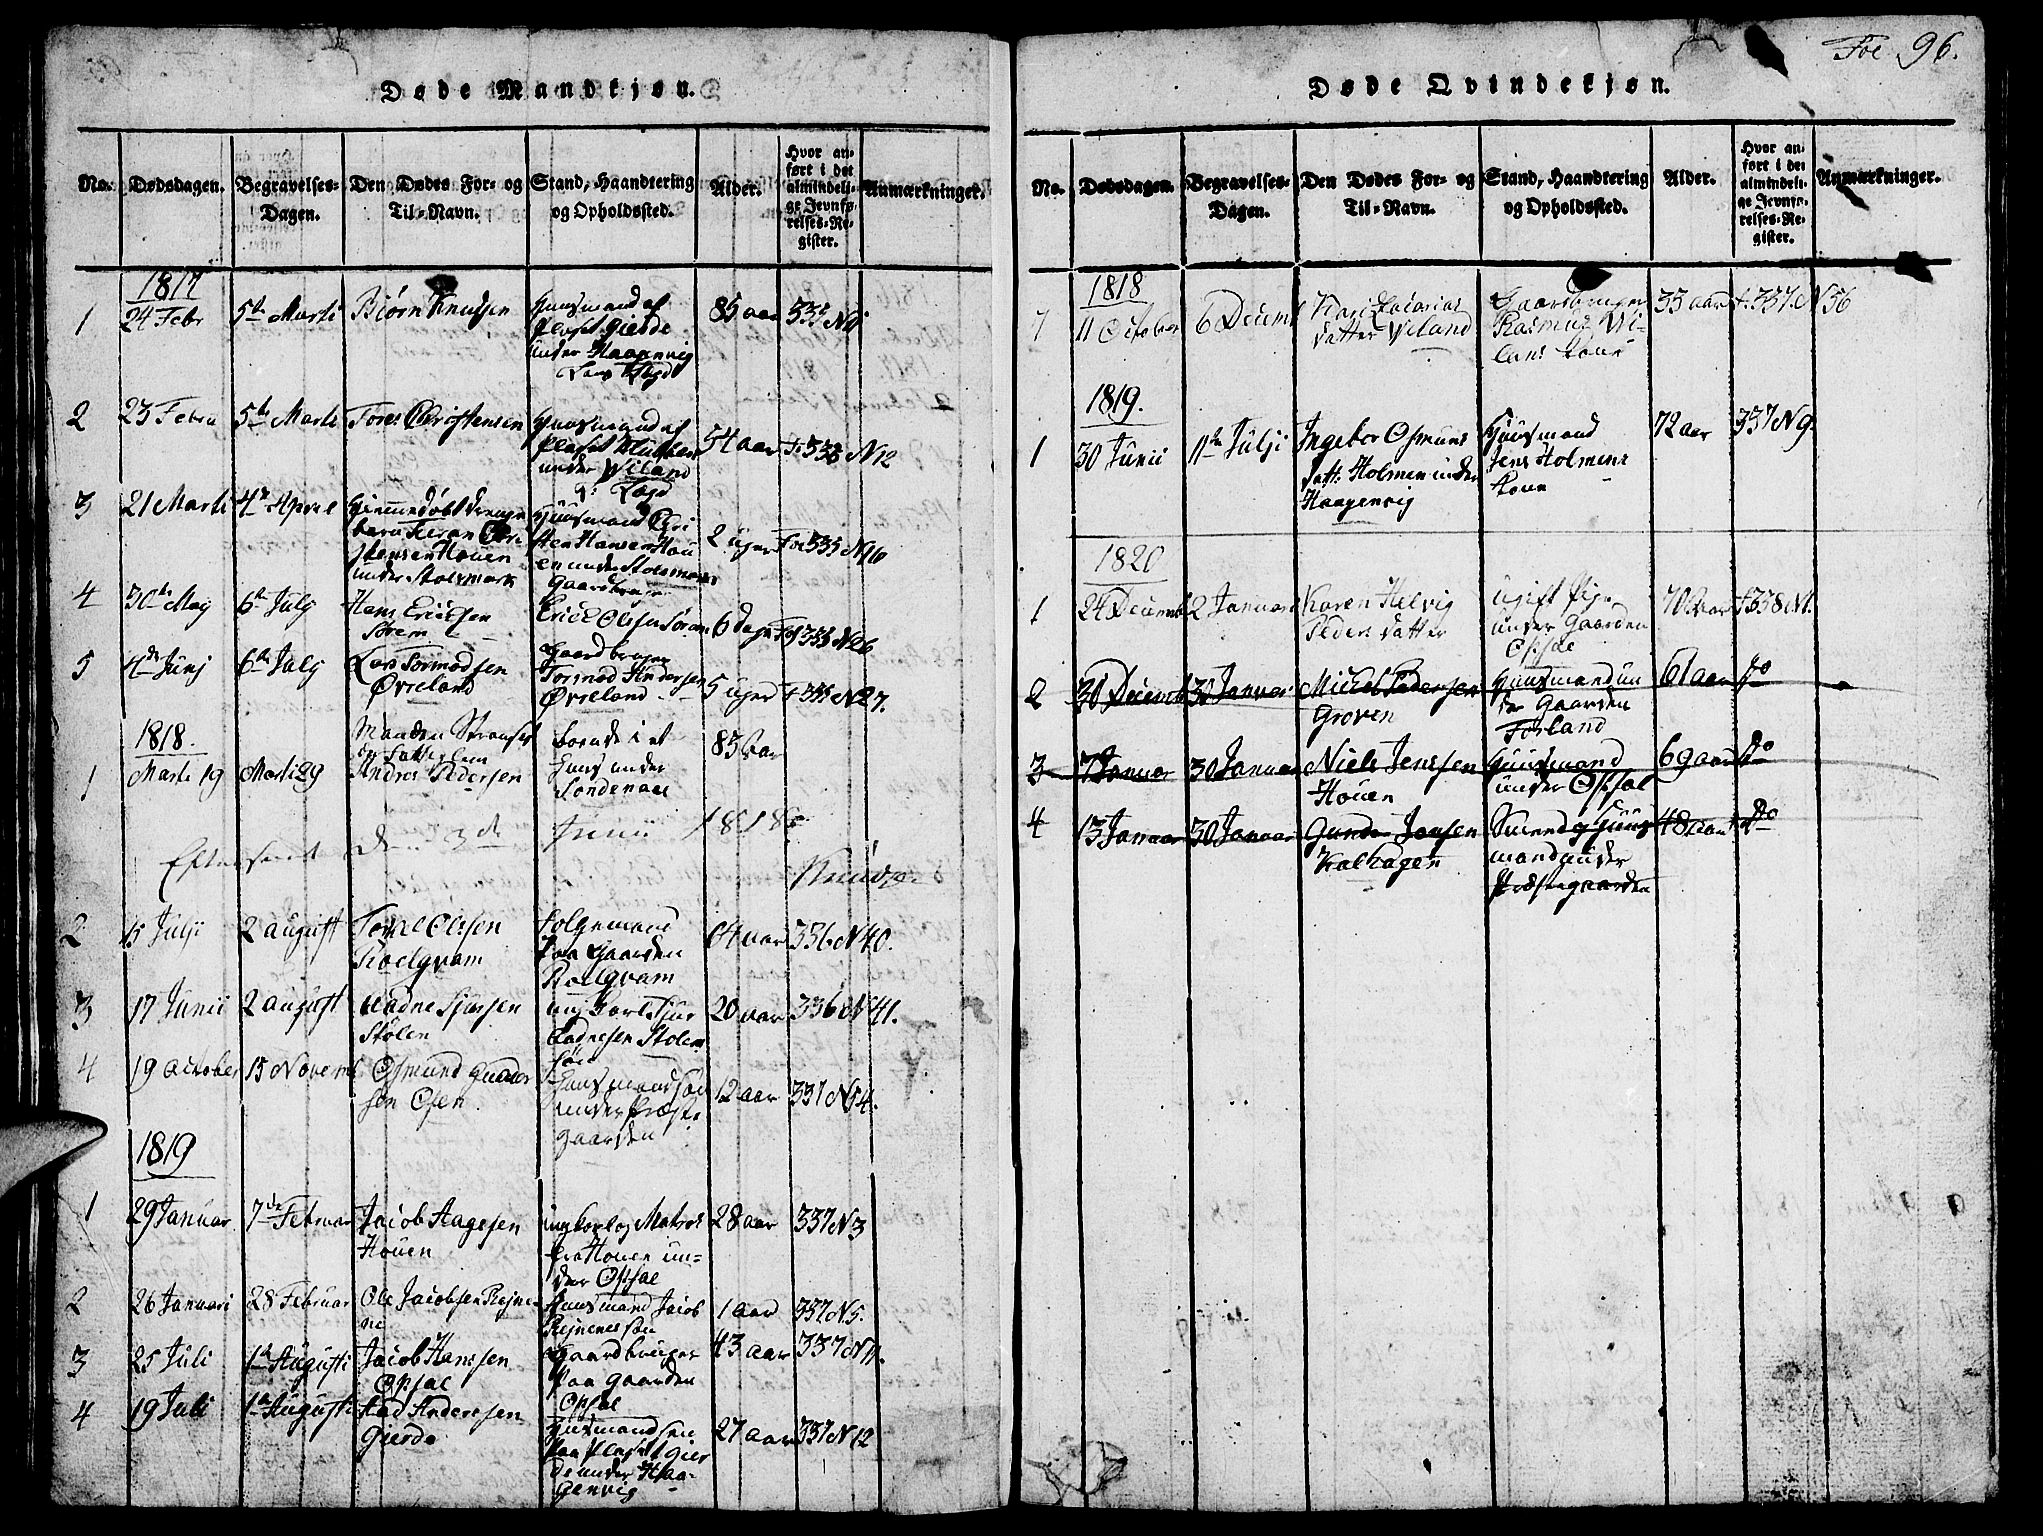 Foe 96.
Døde Mandkjøn.
No. Dødsdagen. Begravelses-Dagen. Den Dødes For- og Til-Navn. Stand, Haandtering og Opholdssted. Alder. Hvor anført i det almindelige Jevnførelses-Register. Anmærkninger.
1817
1 24 Febr 5te Marti Biørn Knudsen Huusmand af
Pladset Gierde
under Haagenvig
85 aar 335 N 9
2 23 Febru 5te Marti Tores Christensen Huusmand af
Pladset
under Viland
54 aar Fo 335 N 12
3 21 Marti 4de Apreel Hiemmedøbt Drenge
barn
Houen
under Stolsmark
Huusmand Chri
sten Hansen Hou
en under Stolsmark
2 uger Foe 335 N 16
4 30te May 6te July Hans Ericksen
Sørem
Gaardbruger
Erick Olsen Sørem 6 dage Foe 335 N 26
5 4de Junj 6te July Lars Tormodsen
Øvreland
Gaardbruger
Tormod Andersen
Øvreland 5 uger F 335 N 27.
1818.
1 Marti 19 Marti 29
Andres Pedersen
boende i et
Huus under
Søndenaae
85 Aar
Efterseet den 3de Junii 1818
Knudzen
2 15 Julji 2 august Torkel Olssen
Roelqvam
Folgemand
paa Gaarden
Roelqvam
64 aar 336 N 40.
3 17 Junii 2 august Ladne Sjursen
Stølen
ung Karl Sjur
Ladnesen Stølens
søn
20 aar 336 N 41.
4 19 October 15 Novemb Osmund Gunder
sen Osen
Huusmand søn
under Præste
gaarden
12 aar 337 N 54.
1819
1 29 Januar. 7de Februar Jacob Aagesen
Houen
ung karl og Matros
fra Houen un-
der Opsal
28 aar 337 N 3
2 26 Januari 28 Februar Ole Jacobsen Rejne-
ne
Huusmand Jacob
Rejnenes søn
1 aar 337 N 5.
3 25 Juli 1te Augusti Jacob Hanssen
Opsal
Gaardbruger
paa Gaarden
Opsal
43 aar 337 N 11.
4 19 Juli 1te Augusti Aad Anderssen
Gierde
Huusmandsøn
paa Pladset Gier
de under Haa-
genvig
27 aar 337 N 12
Døde Qvindekjøn.
No. Dødsdagen. Begravelses-Dagen. Den Dødes For- og Til-Navn. Stand, Haandtering og Opholdssted. Alder. Hvor anført i det almindelige Jevnførelses-Register. Anmærkninger.
1818
7 11 October 6 Decembr Kari Zacarias
datter Viland
Gaardbruger
Rasmus Vi-
lans kone
33 aar f. 337. N 56
1819.
1 30 Junii 11te Julji Ingebor Osmuns
datt. Holmen under
Haagenvig
Huusmand
Jens Holmens
kone
72 aar 337 N 9.
1820
1 24 Decemb 2 Januari Karen Helvig
Peders datter
ugift Pige
under Gaarden
Opsal
70 Aar f 338 N 1.
2 30 Decemb 30 Januar Michel Pedersen
Groven
Huusmand un
der Gaarden
Forland
61 aar do
3 7 Januar 30 Januar Niels Jenssen
Houen
Huusmand
under Opsal
69 aar do
4 13 Januar 30 Januar Gunder Jonsen
Kalhagen
Smend og Huus
mand under
Præstegaarden
48 aar do